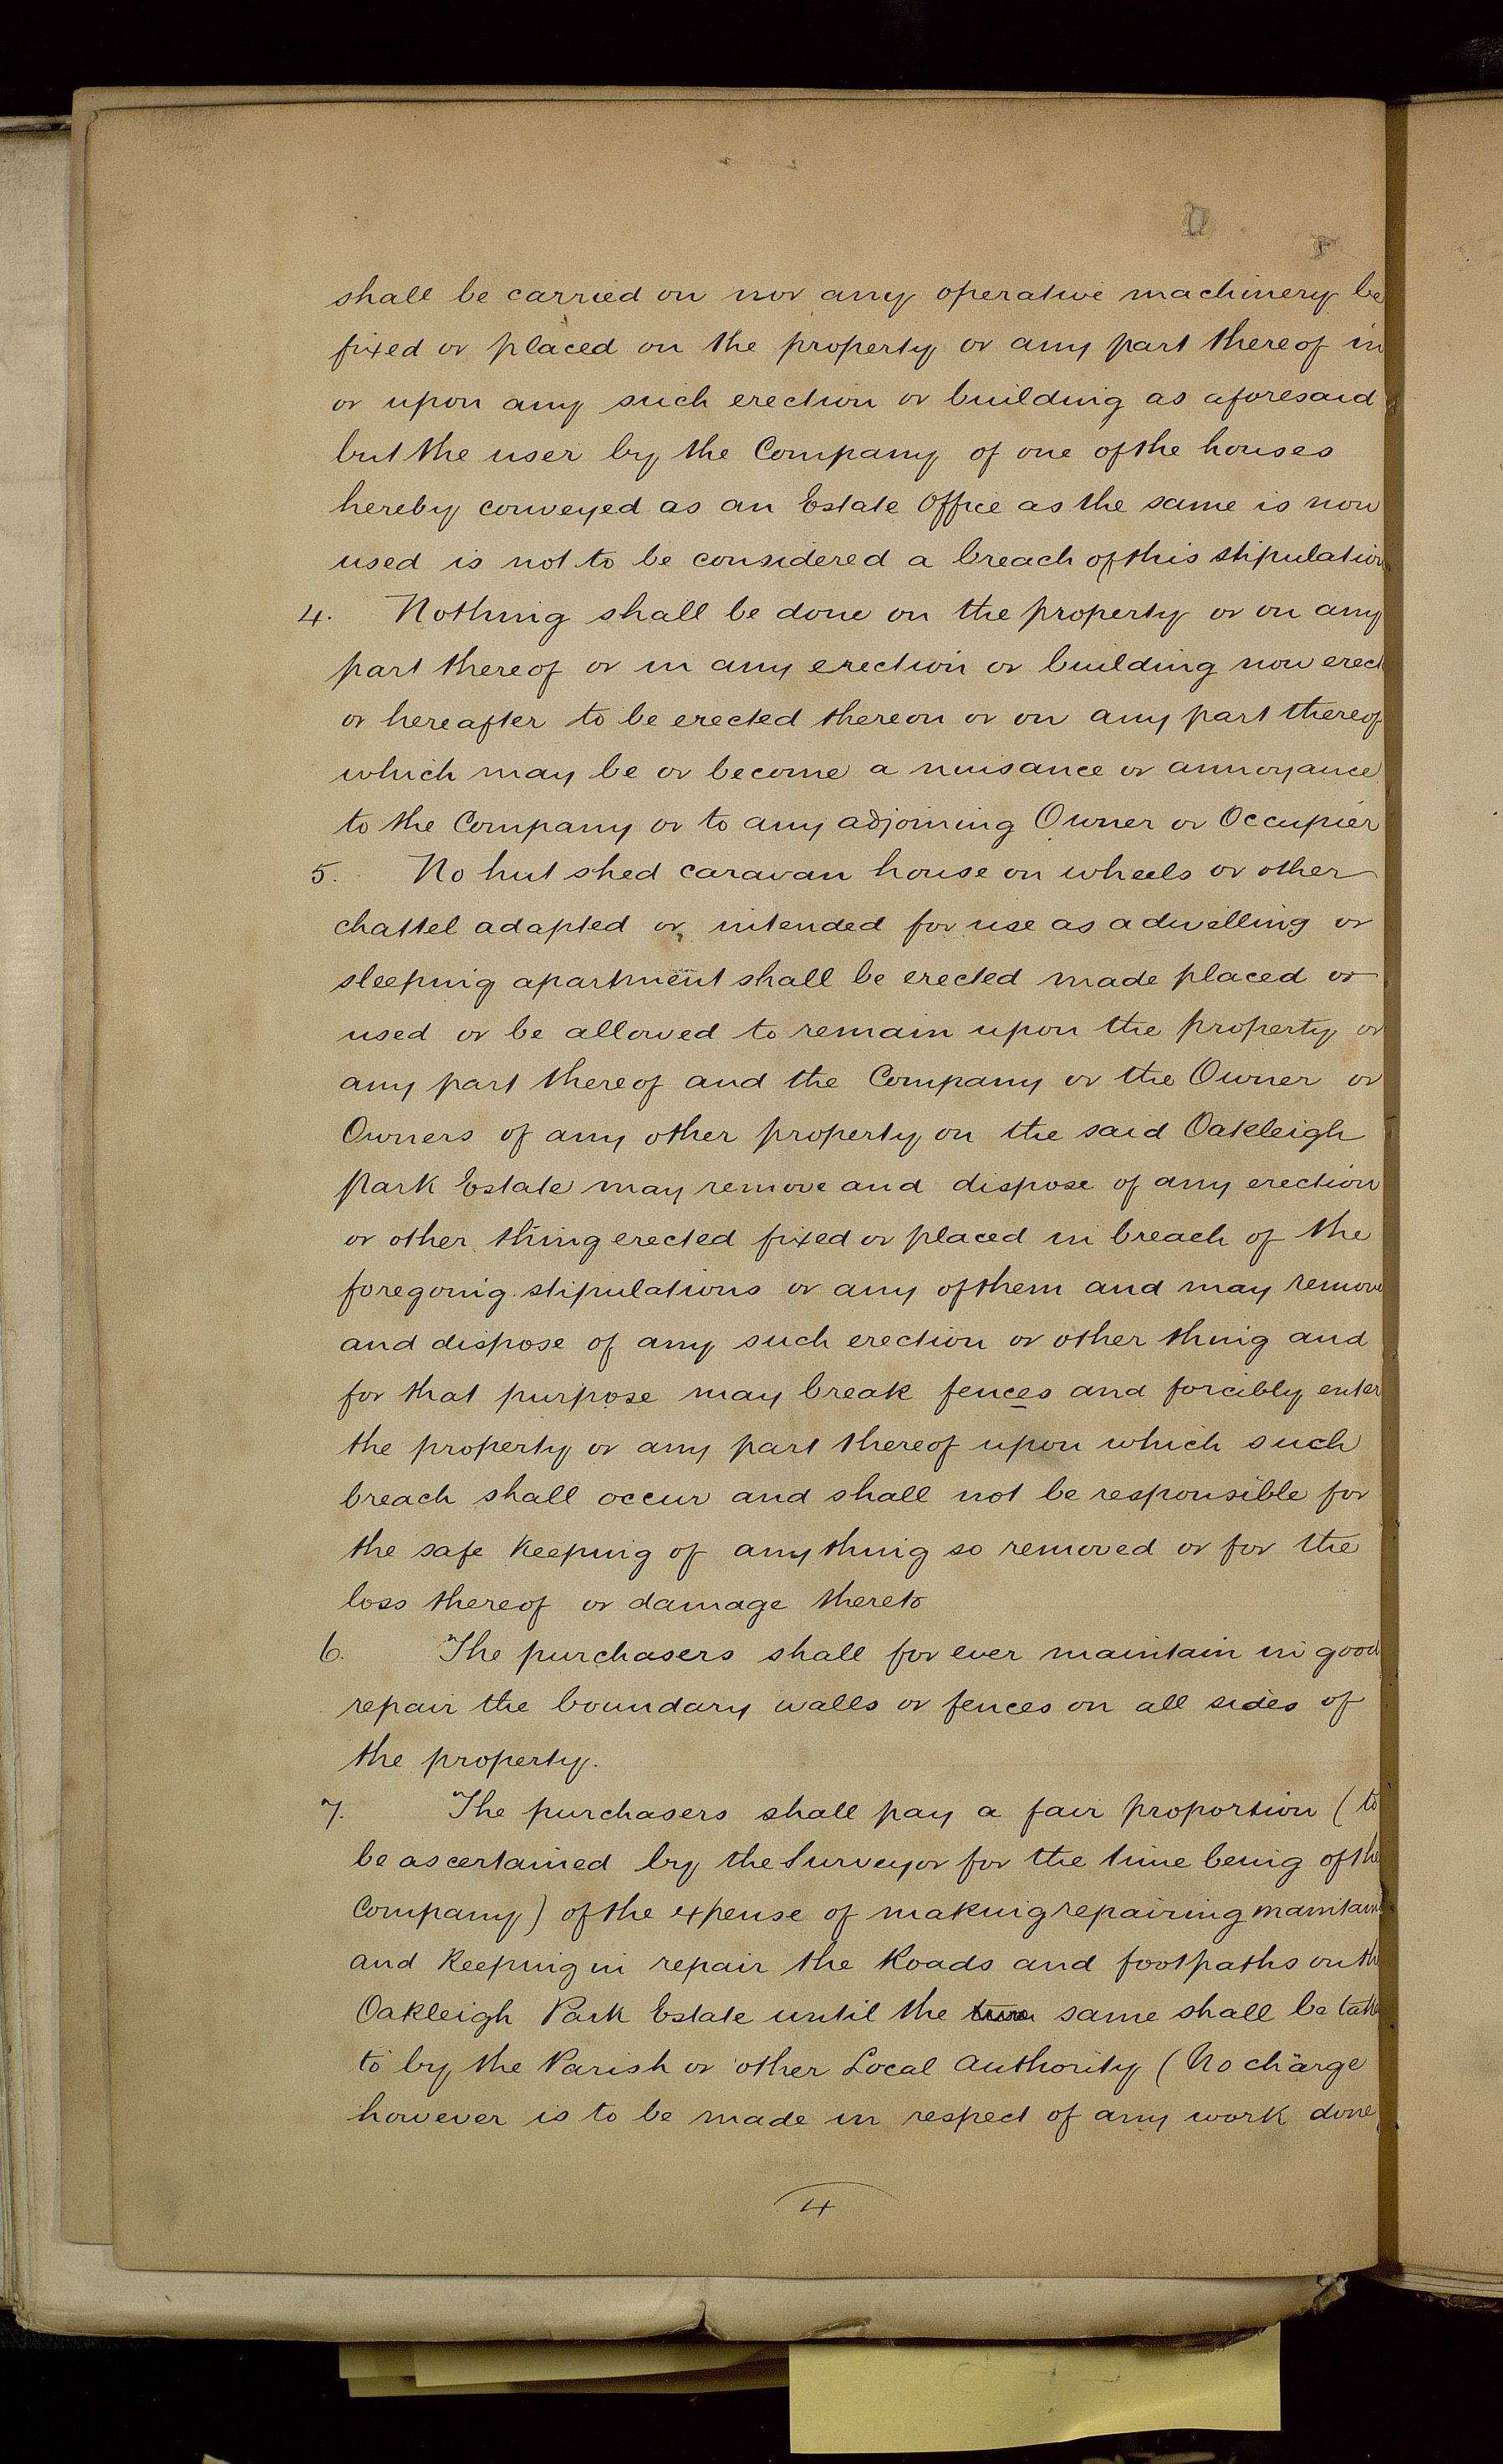 shall be carried on nor any operative machinery be
fixed or placed on the property or any part thereof in
or upon any such erection or building as aforesaid
but the user by the Company of one of the houses
hereby conveyed as an Estate Office as the same is now
used is not to be considered a breach of this stipulation
4. Nothing shall be done on the property or on any
part thereof or in any erection or building now erect
or hereafter to be erected thereon or on any part thereof
which may be or become a nuisance or annoyance
to the Company or to any adjoining Owner or Occupier
5. No hut shed caravan house on wheels or other
chattel adapted or intended for use as a dwelling or
sleeping apartment shall be erected made placed or
used or be allowed to remain upon the property or
any part thereof and the Company or the Owner or
Owners of any other property on the said Oakleigh
Park Estate may remove and dispose of any erection
or other thing erected fixed or placed in breach of the
foregoing stipulations or any of them and may remove
and dispose of any such erection or other thing and
for that purpose may break fences and forcibly enter
the property or any part thereof upon which such
breach shall occur and shall not be responsible for
the safe keeping of anything so removed or for the
loss thereof or damage thereto
6. The purchasers shall for ever maintain in good
repair the boundary walls or fences on all sides of
the property.
7. The purchasers shall pay a fair proportion (to
be ascertained by the Surveyor for the time being of the
Company) of the expense of making repairing maintain
and keeping in repair the Roads and footpaths on th
Oakleigh Park Estate until the same shall be take
to by the Parish or other Local Authority (No charge
however is to be made in respect of any work done
4